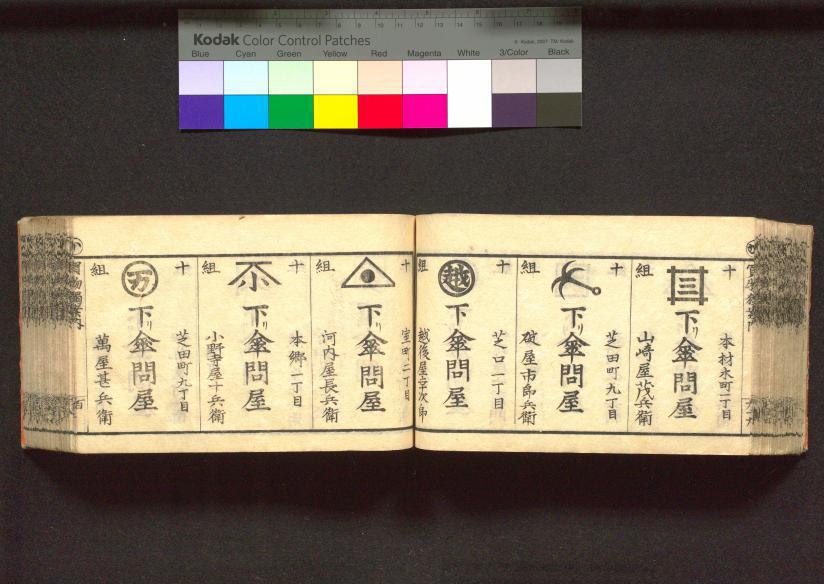 Kodak Color Control Patches
© Kodak, 2007 TM: Kodak
Blue Cyan Green Yellow Red Magenta White 3/Color Black
十
本材木町一丁目
下リ傘問屋
山崎屋茂兵衛
組
十
芝田町九丁目
下リ傘問屋
破屋市郎兵衛
組
十
芝口一丁目
越
下リ傘問屋
越後屋幸次郎
組
十
室町二丁目
下リ傘問屋
河内屋長兵衛
組
十
本郷一丁目
下リ傘問屋
小野寺屋十兵衛
組
十
芝田町九丁目
万
下リ傘問屋
萬屋甚兵衛
組